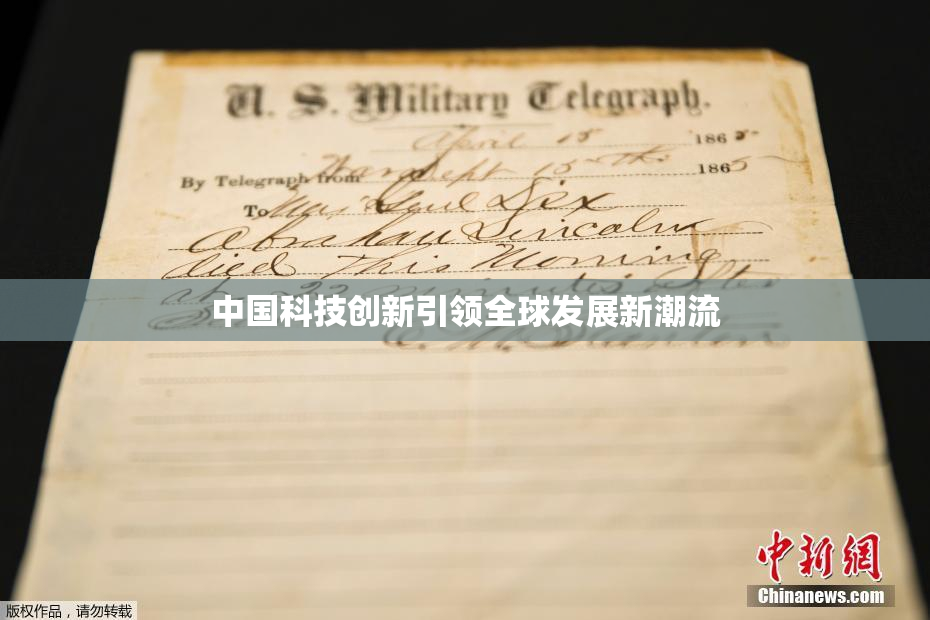 U. S. Military Telegraph.
April 15 1865
By Telegraph from War Dept 15th 1865
To Maj Genl Dix
Abraham Lincoln
died This Morning
at 22 minutes after
中国科技创新引领全球发展新潮流
中新網
Chinanews.com
版权作品，请勿转载